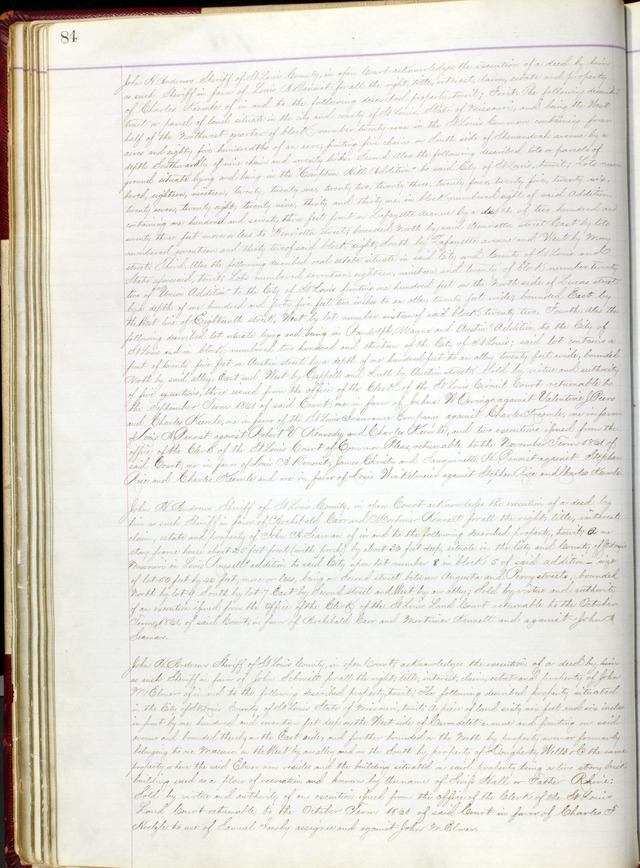 84
John H Andrews Sheriff of St Louis County, in open Court acknowledges the execution of a deed by him
as such Sheriff in favor of Louis A Benoist for all the right, title, interest, claim, estate and property
of Charles Keemle of in and to the following described property, towit; First: The following described
tract or parcel of land situate in the city and county of St Louis, State of Missouri, and being the West
half of the Northeast quarter of block number twenty nine in the St Louis Commons containing four
acres and eighty five hundredths of an acre, fronting five chains on South side of Shenandoah avenue by a
depth Southwardly of nine chains and seventy links. Second Also the following described lots or parcels of
ground situate lying and being in the Compton Hill Addition to said City of St Louis, towit; Lots num-
bered, eighteen, nineteen, twenty, twenty one, twenty two, twenty three, twenty four, twenty five, twenty six,
twenty seven, twenty eight, twenty nine, thirty and thirty one in block numbered eight of said Addition,
containing one hundred and seventy three feet front on Lafayette Avenue by a depth of two hundred and
seventy three feet more or less to Henrietta street; bounded North by said Henrietta street East by lots
numbered seventeen and thirty two of said block eight, South by Lafayette avenue and West by
street. Third. Also the following described real estate situate in said City and County of St Louis and
State aforesaid, towit; Lots numbered seventeen, eighteen, nineteen and twenty of block number twenty
two of "Union Addition" to the City of St Louis fronting one hundred feet on the North side of Lucas street
by a depth of one hundred and forty five feet two inches to an alley twenty feet wide; bounded East by
the West line of Eighteenth street, West by lot number sixteen of said block twenty two. Fourth. Also the
following described lot situate lying and being in Randolph, Wayne and Austin Addition to the City of
St Louis and in block numbered two hundred and of the City of St Louis; said lot contains a
front of twenty five feet on Austin street by a depth of one hundred feet to an alley twenty feet wide, bounded
North by said alley, East and West by Cappell and South by Austin street. Sold by virtue and authority
of five executions, three issued from the office of the Clerk of the St Louis Circuit Court returnable to
the September Term 1861 of said Court; one in favor of John W against Valentine J Peers
and Charles Keemle, one in favor of the St Louis Insurance Company against Charles Keemle, one in favor
of Louis A Benoist against Robert V Kennedy and Charles Keemle, and two executions issued from the
office of the Clerk of the St Louis Court of Common Pleas, returnable to the November Term 1861 of
said Court; one in favor of Louis A Benoist, James and H Benoist against Stephen
Rice and Charles Keemle and one in favor of Louis against Stephen Rice and Charles Keemle.
John H Andrews Sheriff of St Louis County, in open Court acknowledges the execution of a deed by
him as such Sheriff in favor of Archibald Carr and Mortimer Kennett for all the right, title, interest,
claim, estate and property of John A Seaman of in and to the following described property, towit; A one
story frame house about 25 feet front (with porch) by about 30 feet deep, situate in the City and County of St Louis
Missouri in Lewis Russell addition to said City upon lot number 8 in block 5 of said addition - size
of lot 50 feet by feet, more or less, being on Second street between Augusta and Perry streets, bounded
North by lot 9 South by lot 7 East by Second street and West by an alley; Sold by virtue and authority
of an execution issued from the Office of the Clerk of the St Louis Land Court returnable to the October
Term 1861 of said Court, in favor of Archibald Carr and Mortimer Kennett and against John A
Seaman.
John H Andrews Sheriff of St Louis County, in open Court acknowledges the execution of a deed by him
as such Sheriff in favor of John Schmitt for all the right, title, interest, claim, estate and property of John
McElmer of in and to the following described property, towit; The following described property situated
in the City of St Louis County of St Louis State of Missouri, towit: A piece of land sixty six feet and six inches
in front by one hundred and seventeen feet deep on the West side of Carondelet avenue and fronting on said
avenue and bounded thereby on the East side, and further bounded on the North by property now or formerly
belonging to on the West by an alley and on the South by property of Dougherty Wells & the same
property where the said Elmer now resides and the buildings situated on said property being a two story brick
building used as a place of recreation and known by the name of Hall or Father
Sold by virtue and authority of an execution issued from the office of the Clerk of the St Louis
Land Court returnable to the October Term 1861 of said Court in favor of Charles F
to use of Samuel assignee and against John McElmer.